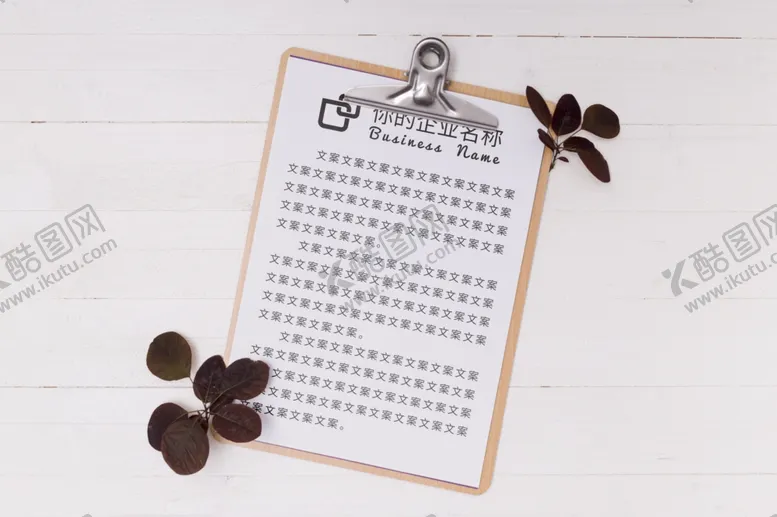 你的企业名称
Business Name
文案文案文案文案文案文案文案文案
文案文案文案文案文案文案文案文案文案
文案文案文案文案文案文案文案文案文案
文案文案文案文案文案文案文案文案文案
文案文案文案文案。
文案文案文案文案文案文案文案文案
文案文案文案文案文案文案文案文案文案
文案文案文案文案文案文案文案文案文案
文案文案文案文案文案文案文案文案文案
文案文案文案文案。
文案文案文案文案文案文案文案文案
文案文案文案文案文案文案文案文案文案
文案文案文案文案文案文案文案文案
文案文案文案文案文案文案文案文案
文案文案文案文案。
酷图网
www.ikutu.com
酷图网
www.ikutu.com
酷图网
www.ikutu.com